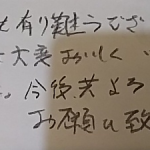 も有り難うござ
大変おいしく
。今後共よろ
お願い致